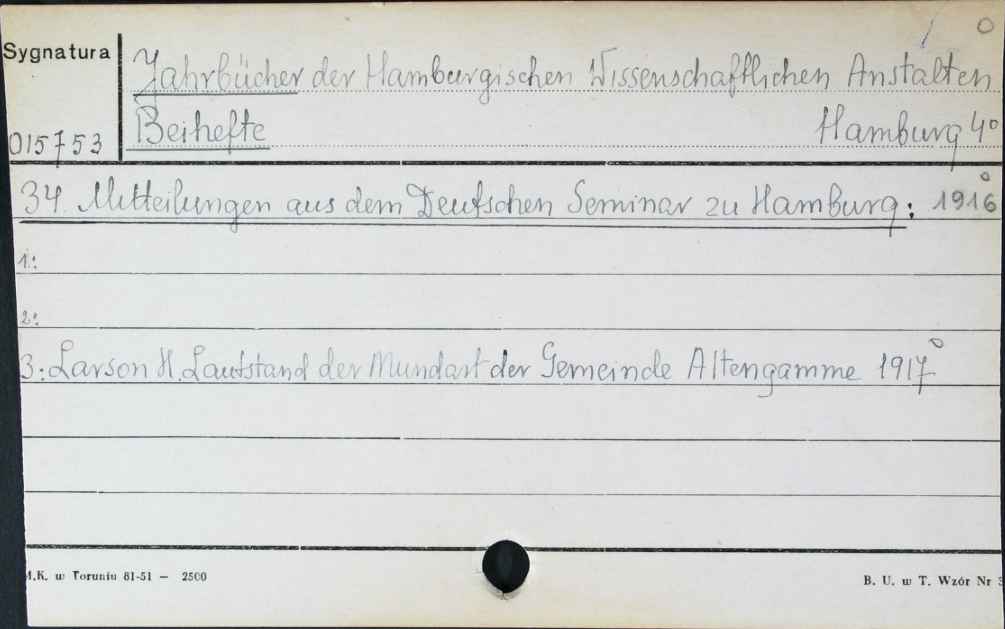 Sygnatura
Jahrbücher der Hamburgischen Wissenschaftlichen Anstalten
015753
Beihefte Hamburg 4°
34 Mitteilungen aus dem Deutschen Seminar zu Hamburg: 1916
1:
2:
3: Larson H. Lautstand der Mundart der Gemeinde Altengamme 1917
M.K. w Toruniu 81-51 — 2500
B. U. w T. Wzór Nr 3